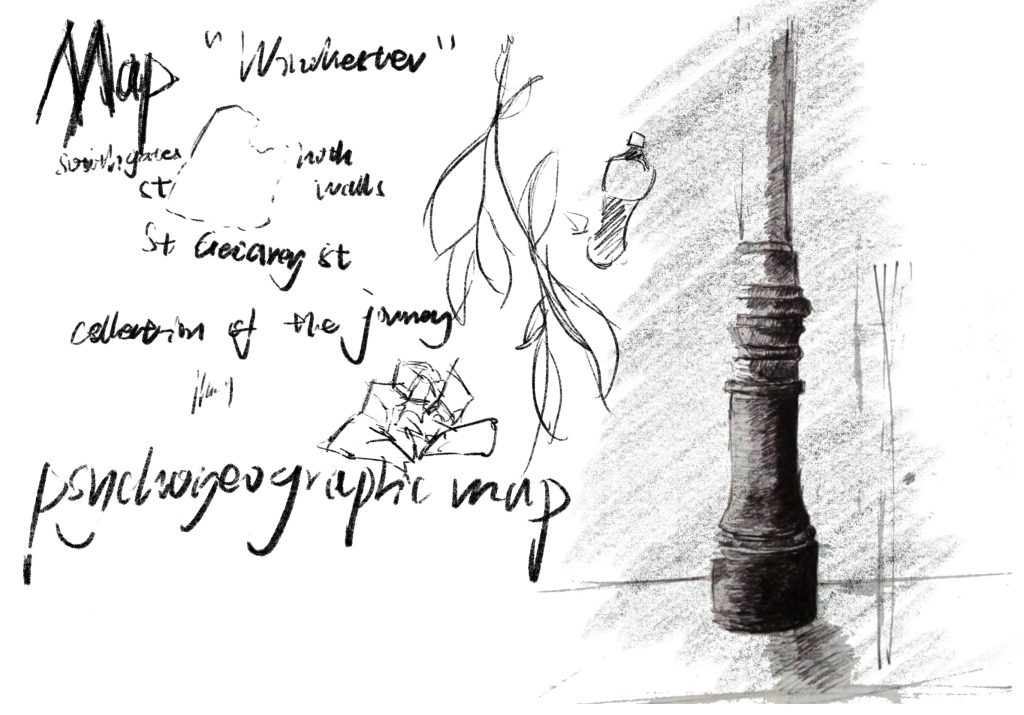 Map "Winchester"
north
st walls
st st
collection of the journey
psychogeographic map